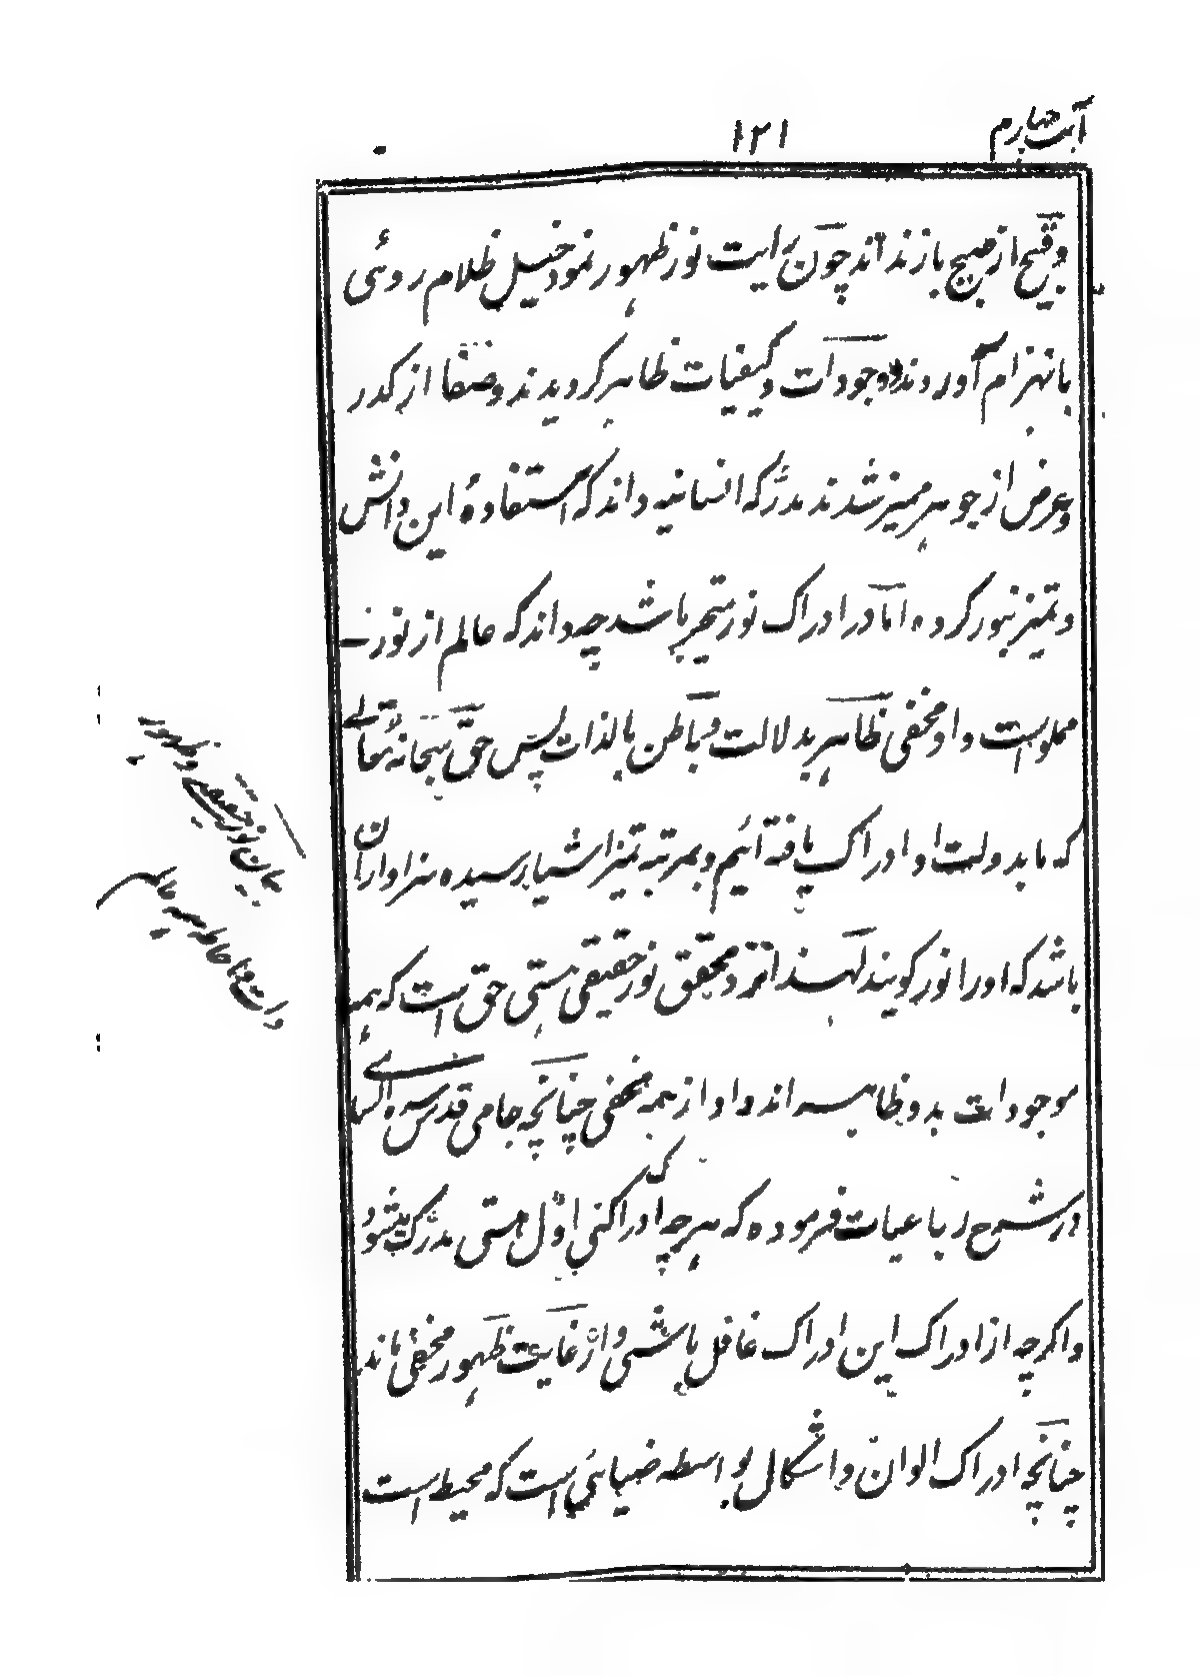 آیت چهارم
۱۲۱
و قبیح از صبیح باز نداند چون رایت نور ظهور نمود خیل ظلام روئی
بانهزام آوردند وجودات و کیفیات ظاهر گردیدند و صفا از کدر
و عرض از جوهر ممیز شدند مدرکه انسانیه داند که استفاده این دانش
و تمیز بنور کرده اما در ادراک نور متحیر باشد چه داند که عالم از نور
مملو است و او مخفی ظاهر بدلالت و باطن بالذات پس حق سبحانه تعالی
که ما بدولت او ادراک یافته ائیم و بمرتبه تمیز اشیا رسیده سزاوار آن
باشد که او را نور گویند لهذا نزد محقق نور حقیقی هستی حق است که همه
موجودات بدو ظاهر اند و او از همه مخفی چنانچه جامی قدس سره السامی
در شرح رباعیات فرموده که هر چه ادراک کنی اول هستی مدرک میشود
و اگرچه از ادراک این ادراک غافل باشی و از غایت ظهور مخفی ماند
چنانچه ادراک الوان و اشکال بواسطه ضیائی است که محیط است
بیان نور حقیقی و ظهور